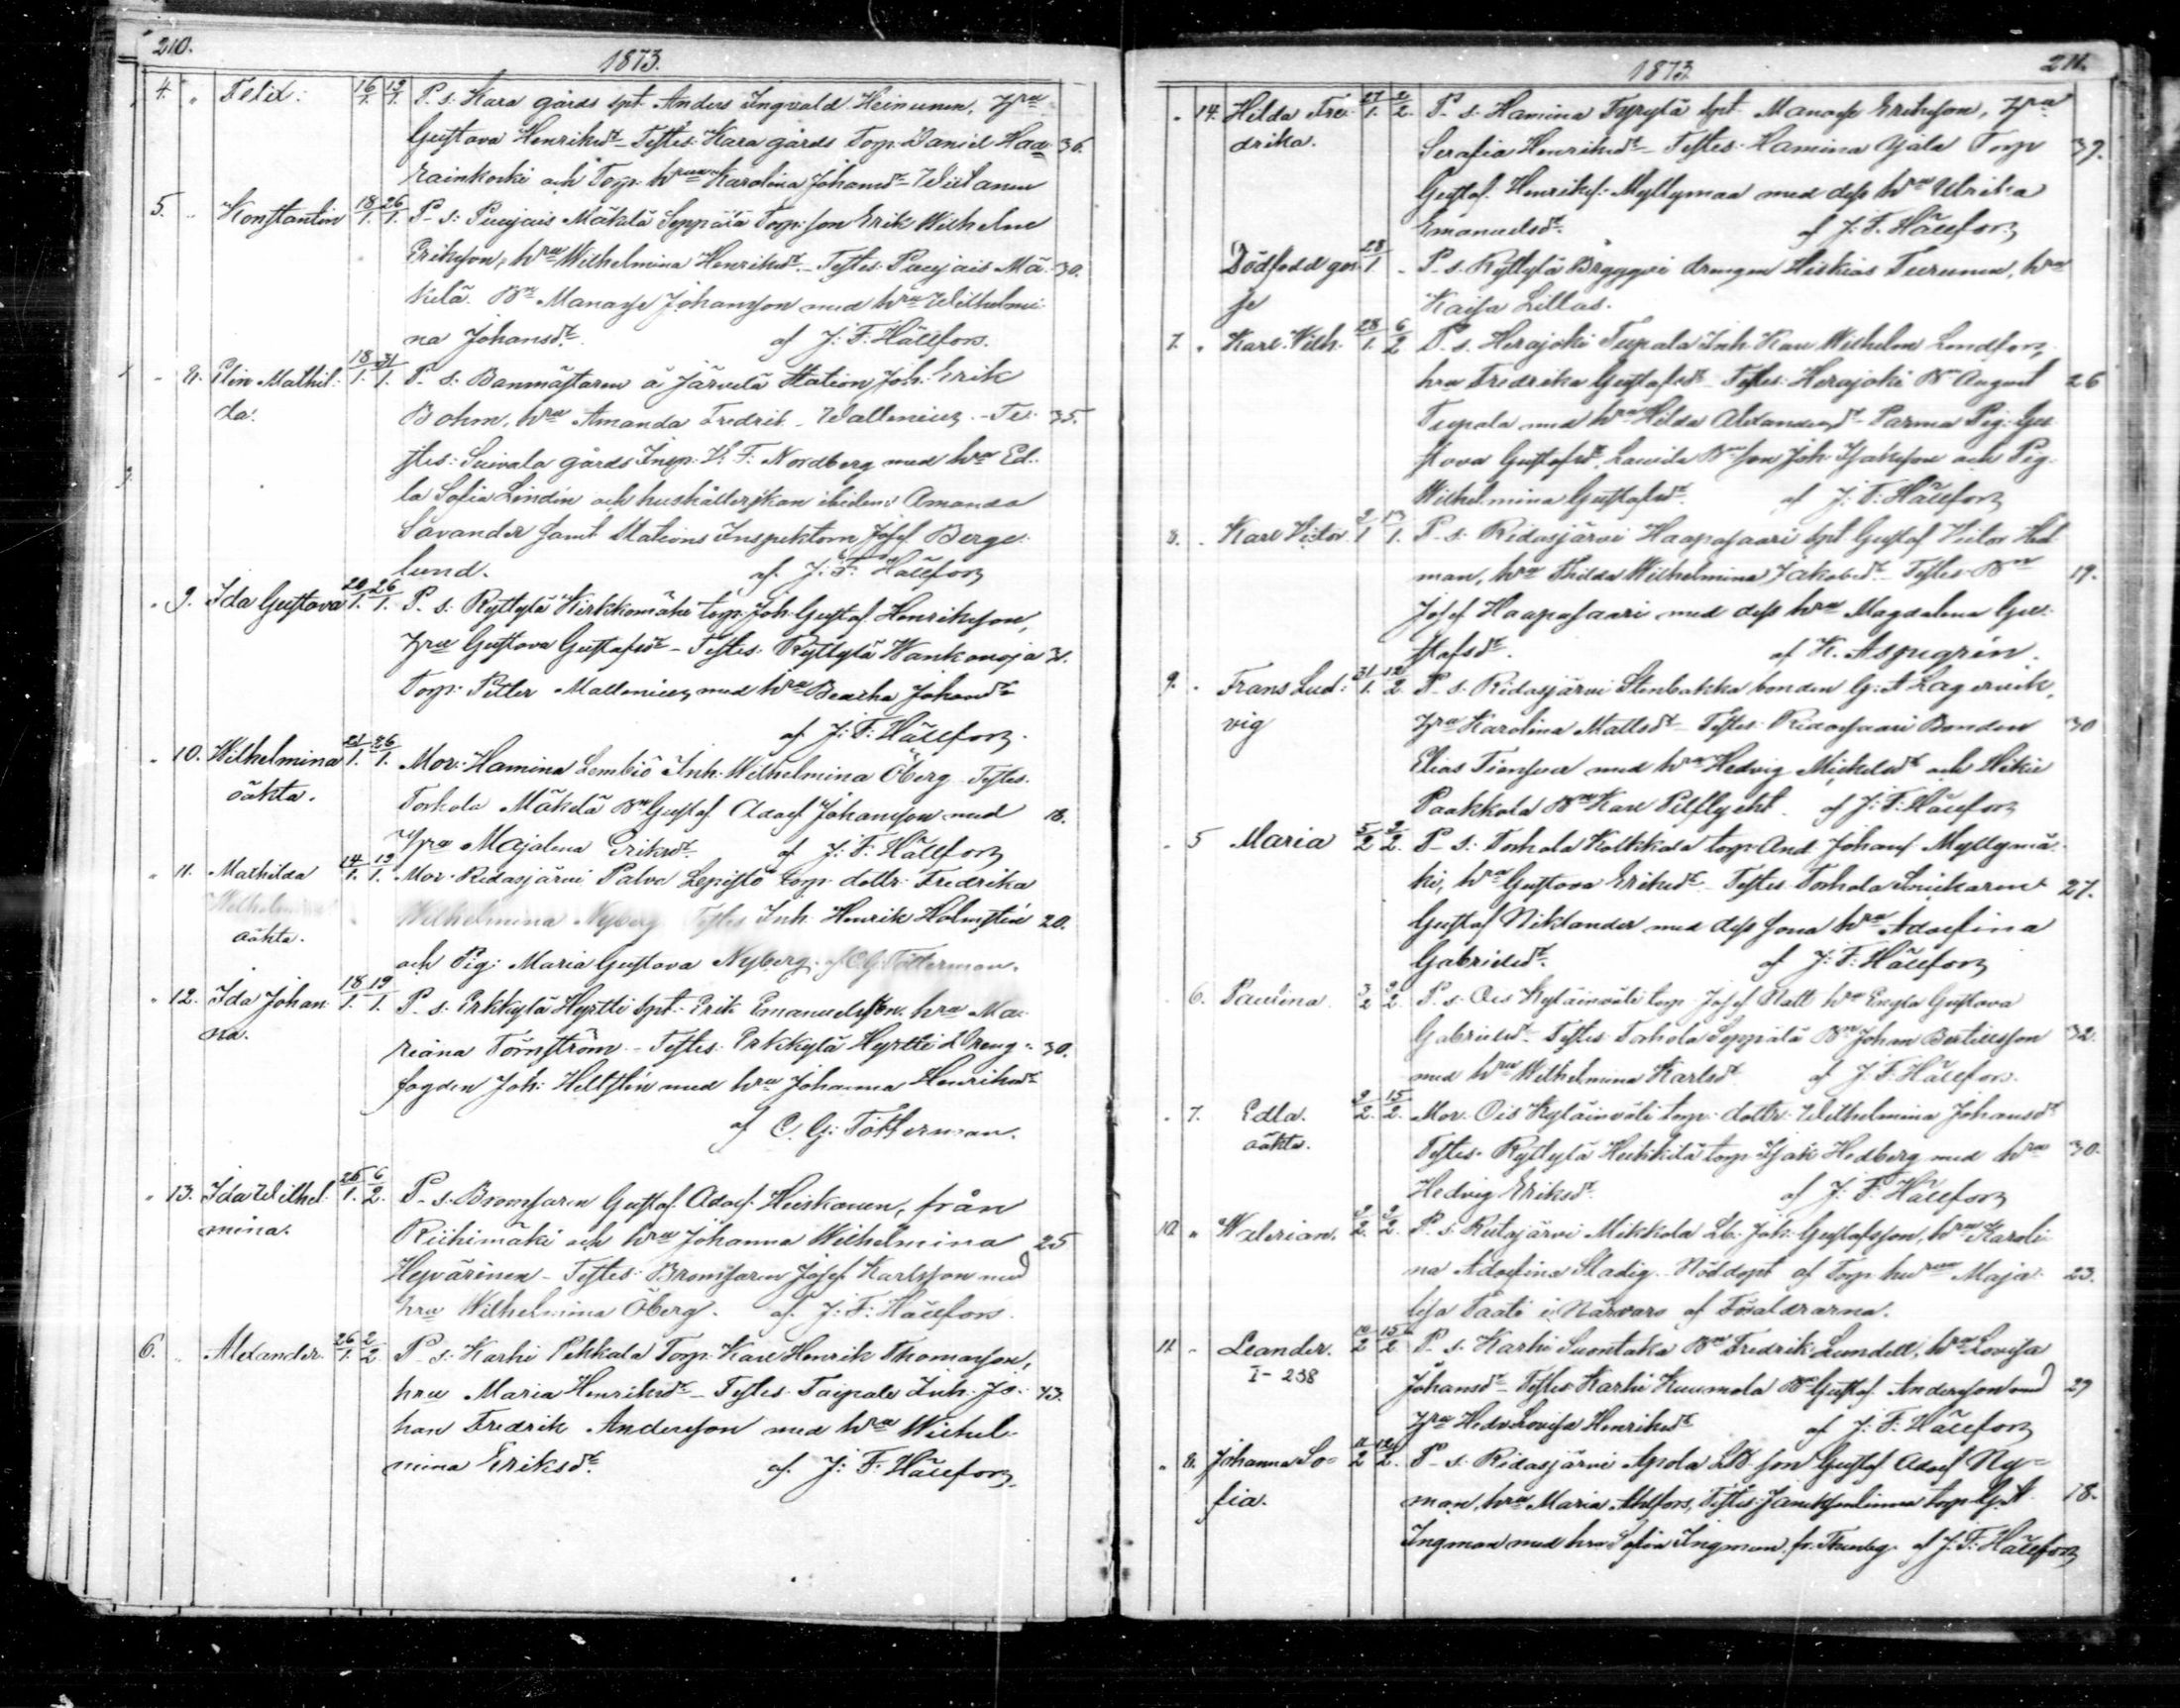 210.
1873.
4. " Felix. 16/1. 19/1. P. s: Kara gårds spt. Anders Ingvald Heinunen, Hru
Gustava Henriksdr - Testes: Kara gårds Torp: Daniel Haa= 36.
rainkorki och Torp: hrun Karolina Johansdr Wiitanen
5. " Konstantin 18/1. 26/1. P. s: Puujais Mäkilä Seppälä Torp: son Erik Wilhelm
Eriksson, hru Wilhelmina Henriksdr - Testes: Puujais Mä= 30.
kelä Bn Manasse Johansson med hru Wilhelmi=
na Johansdr. af J: F: Hällfors.
" 8. Elin Mathil= 18/1. 31/1. P. s: Banmästaren å Järvelä Station Joh: Erik
da. Bohm, hru Amanda Fredrik. Wallenius. - Te= 35.
stes: Suivala gårds Insp: V. F. Nordberg med hru Ed=
la Sofia Lindén och hushållerskan ibidem Amanda
Savander samt Stations Inspektorn Josef Berg=
lund. af J: F: Hällfors
" 9. Ida Gustava 20/1. 26/1. P. s: Ryttylä Kirkkomäki torp: Joh: Gustaf Henriksson,
Hru Gustava Gustafsdr - Testes: Ryttylä Wankanoja 31.
Torp: Petter Mallenius, med hru Beatha Johansdr
af J: F: Hällfors.
" 10. Wilhelmina 21/1. 26/1. Mor: Hamina Lembiö Inh: Wilhelmina Öberg Testes:
oäkta. Torhola Mäkelä Bn Gustaf Adolf Johansson med 18.
Hru Majalena Eriksdr. af J: F: Hällfors
" 11. Mathilda 14/1. 19/1. Mor: Ridasjärvi Palva Lepistö torp: dottr: Fredrika
Wilhelmina Wilhelmina Nyberg Testes Inh: Henrik Holmstén 20.
oäkta. och Pig: Maria Gustava Nyberg. af C. G. Tötterman.
" 12. Ida Johan= 18/1. 19/1. P. s: Erkkylä Hyrtti Spt: Erik Emanuelsson, hru Ma=
na. riana Törnström - Testes: Erkkylä Hyrtti Dreng= 30.
fogden Joh: Heltstén med hru Johanna Henriksdr
af C. G: Tötterman.
" 13. Ida Wilhel= 26/1. 6/2. P. s: Bromsaren Gustaf Adolf Heiskanen, från
mina. Riihimäki och hru Johanna Wilhelmina 25
Hepärinen - Testes: Bromsaren Josef Karlsson med
hru Wilhelmina Öberg. af J: F: Hällfors.
6. " Alexander. 26/1. 2/2. P. s: Karhi Pekkala Torp: Karl Henrik Thomasson,
hru Maria Henriksdr - Testes: Taipale Inh: Jo= 43.
han Fredrik Andersson med hru Wilhel=
mina Eriksdr. af J: F: Hällfors.
1873.
211.
" 14. Hilda Fre= 27/1. 2/2. P. s: Hamina Tyrylä spt. Manasse Eriksson, Hru
drika. Serafia Henriksdr - Testes: Hamina Ojala Torp 39.
Gustaf Henrikss: Myllymaa med dess hru Ulrika
Emanuelsdr. af J: F. Hällfors
Dödfödd gos= 28/1. P. s. Ryttylä Bryggeri drengen Hiskias Turunen, hru
se Kaisa Lillas.
7. " Karl Wilh: 28/1. 6/2. P. s. Herajoki Tupala Inh Karl Wilhelm Lindfors,
hru Fredrika Gustafsdr - Testes: Herajoki Bn August 26
Tupala med hru Hilda Alexandersdr - Parma Pig: Gu=
stava Gustafsdr, Laurila Bn son Joh: Isaksson och Pig:
Wilhelmina Gustafsdr af J: F: Hällfors
8. " Karl Victor. P. s: Ridasjärvi Haapasaari spt Gustaf Victor Hed=
man, hru Thilda Wilhelmina Jakobsdr - Testes Bn 19.
Josef Haapasaari med dess hru Magdalena Gu=
stafsdr. af K. Aspegrén.
9. " Frans Lud= 31/1. 12/2. P. s: Ridasjärvi Stenbakka bonden G: A Lagervik,
vig Hru Karolina Mattsdr - Testes: Ridasjärvi Bonden 30
Elias med hru Hedvig Mickelsdr och
Paakkola Bn Karl af J: F: Hällfors
" 5 Maria 5/2. 9/2. P. s: Torhola Kolkkala torp: And. Johans: Myllymä=
ki, hru Gustava Eriksdr - Testes: Torhola Snickaren 27.
Gustaf Niklander med dess sona hru Adolfina
Gabrielsdr. af J: F: Hällfors
" 6. Paulina. 3/2. 9/2. P. s. Ois Kyläinväli torp: Josef hru Engla Gustava
Gabrielsdr - Testes: Torhola Seppälä Bn Johan Bertilsson 32.
med hru Wilhelmina Karlsdr af J: F: Hällfors.
" 7. Edla. 9/2. 15/2. Mor: Ois Kyläinväli torp: dottr: Wilhelmina Johansdr
oäkta. Testes: Ryttylä Heikkilä torp: Isak Hedberg med hru 30.
Hedvig Eriksdr. af J: F: Hällfors
10. " Walerian. 9/2. 9/2. P. s: Mikkola Lb: Joh: Gustafsson, hru Karoli=
na Adolfina Stadig. Nöddöpt af Torp: hustru Maja= 23.
lisa Taati i Närvaro af Föräldrarna.
11. " Leander. 10/2 15/2 P. s: Karhi Suontaka Bn Fredrik Lundell, hru Lovisa
I-238 Johansdr - Testes Karhi Kuumola Bn Gustaf Andersson med 29
Hru Hedv: Lovisa Henriksdr af J: F: Hällfors
" 8. Johanna So= 11/2 12/2. P. s: Ridasjärvi Apola LB son Gustaf Adolf Ny=
fia. man, hru Maria Ahlfors, Testes: torp: G. A. 18.
Ingman med hru Sofia Ingman, fr. af J: F: Hällfors